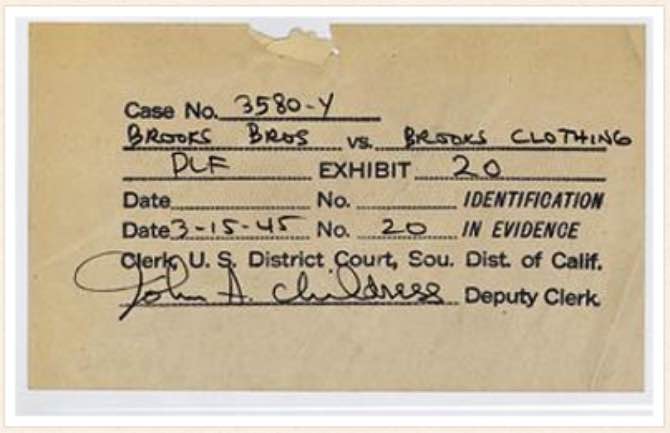 Case No. 3580-Y
BROOKS BROS vs. BROOKS CLOTHING
PLF EXHIBIT 20
Date No. IDENTIFICATION
Date 3-15-45 No. 20 IN EVIDENCE
Clerk, U. S. District Court, Sou. Dist. of Calif.
John A. Childress Deputy Clerk